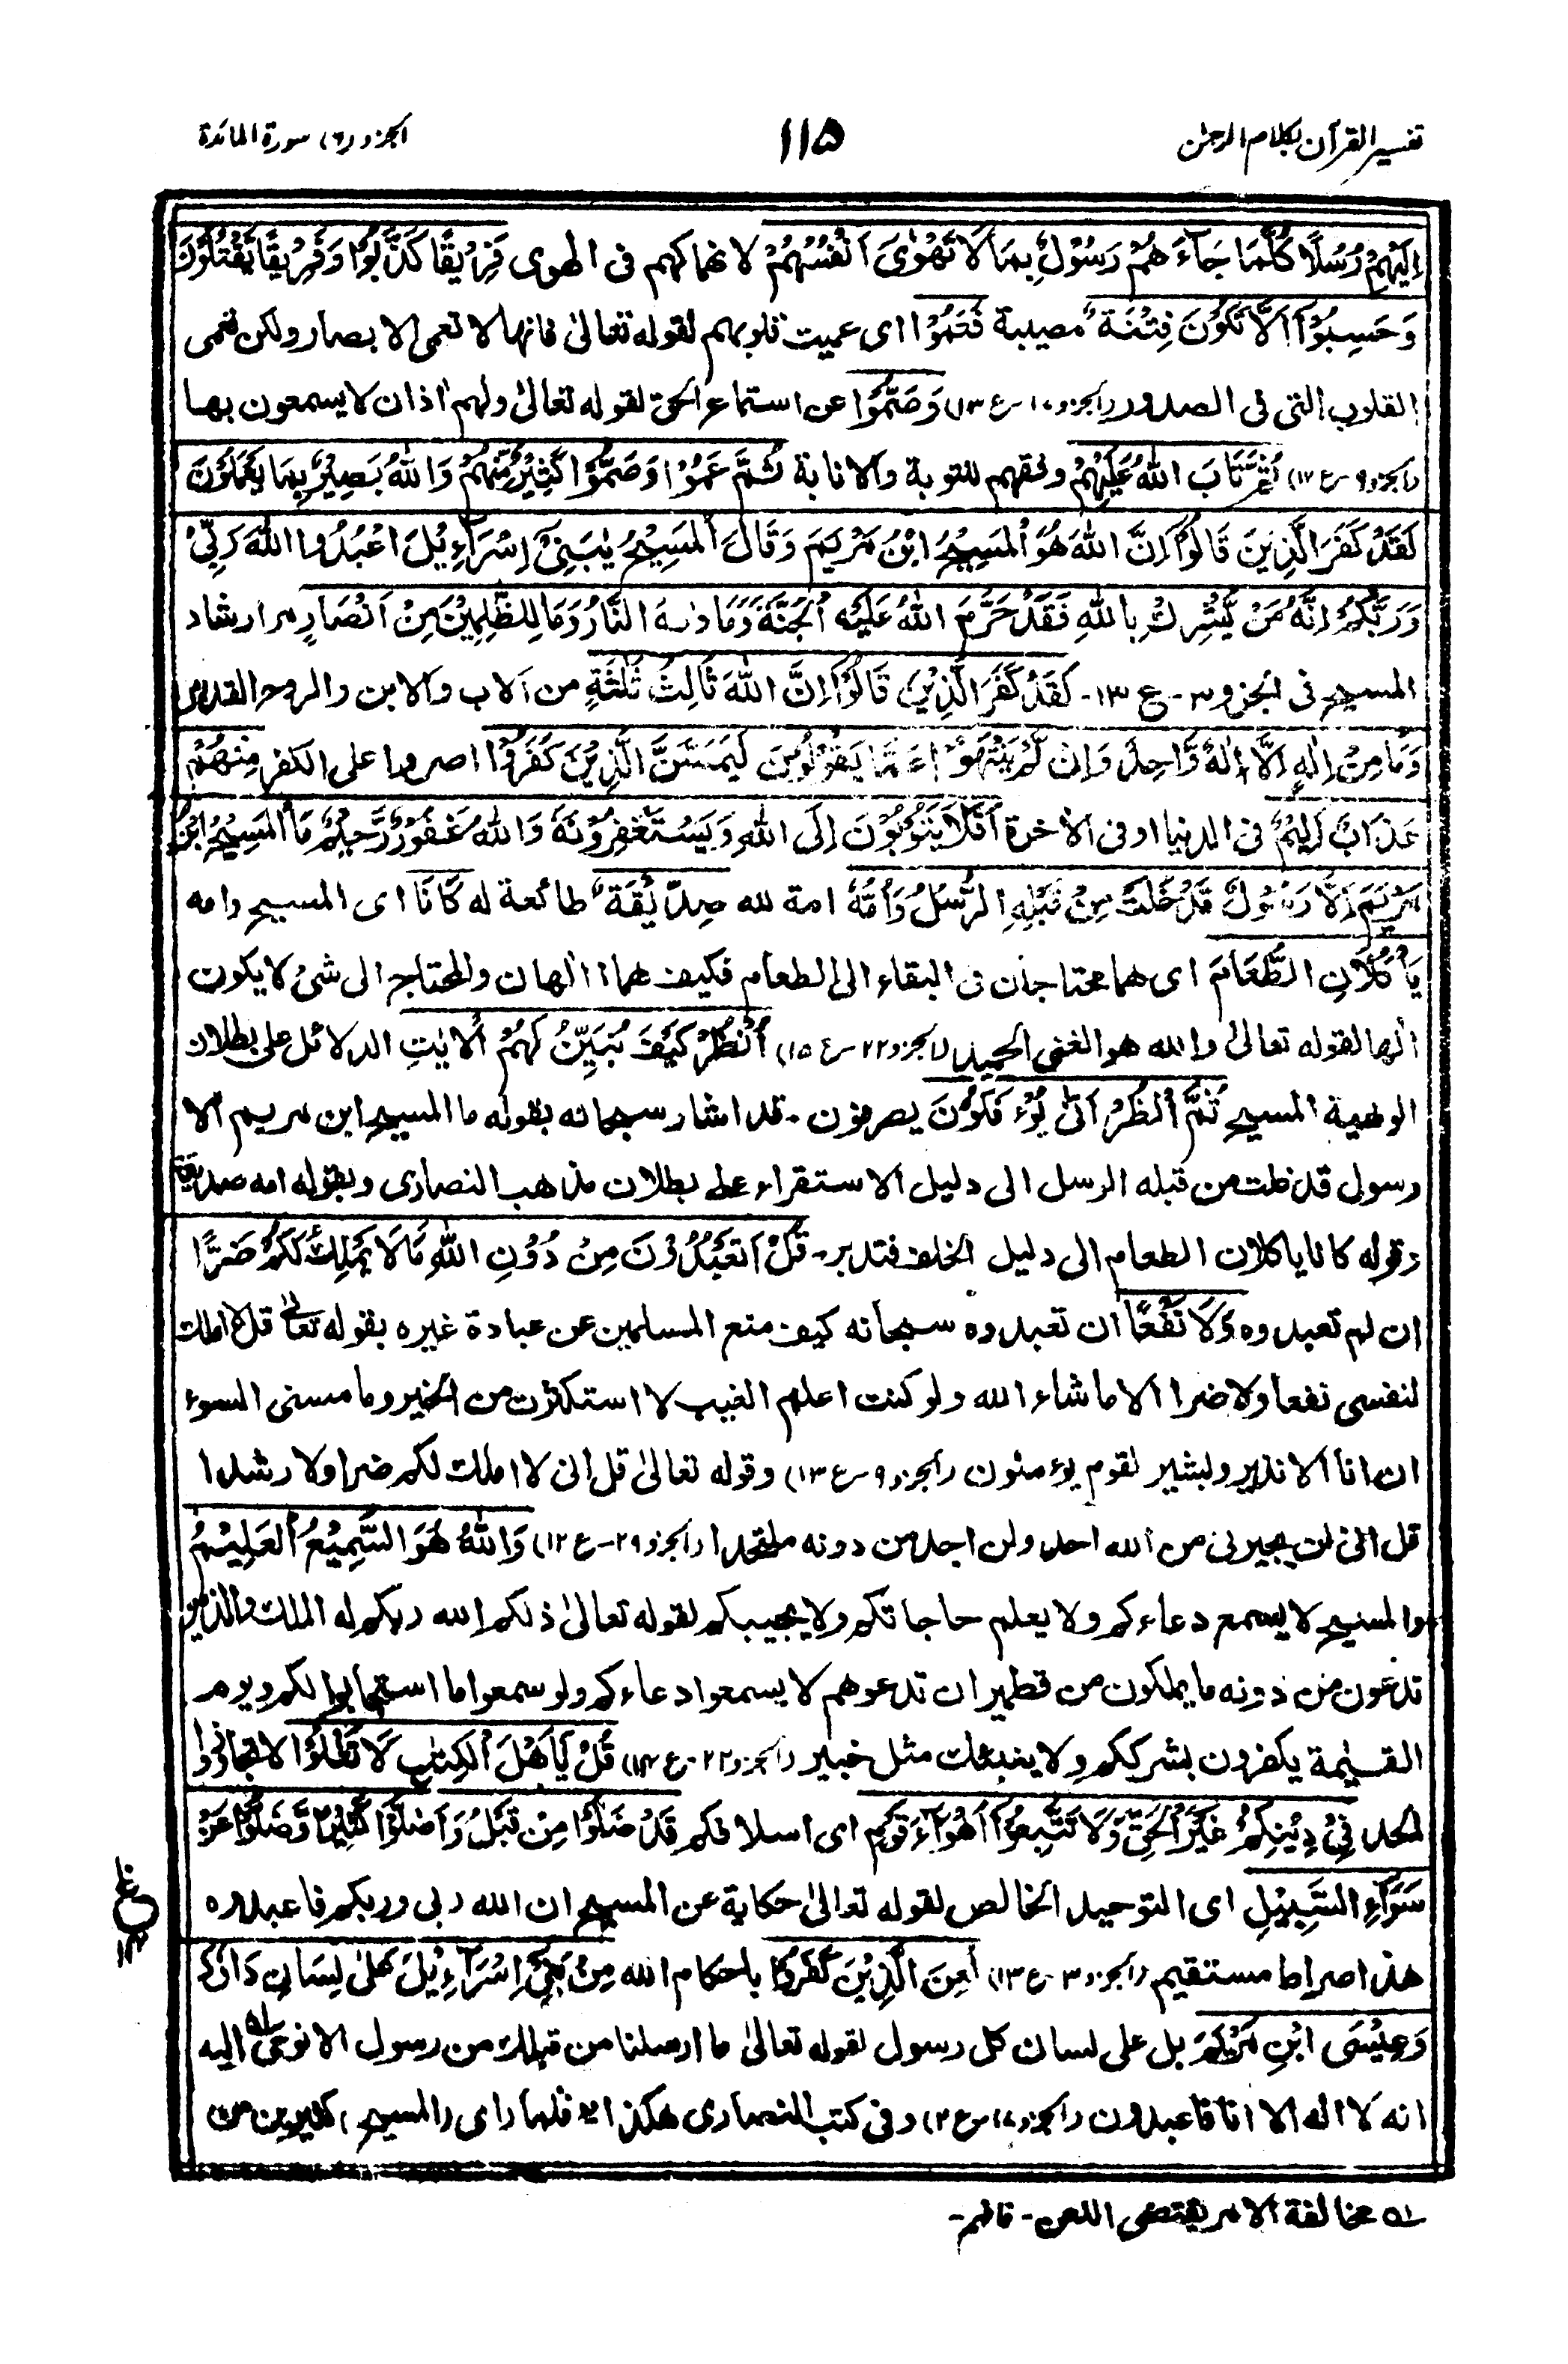 تفسير القرآن بكلام الرحمٰن
١١٥
الجزو (٦) سورة المائدة
اِلَيْهِمْ رُسُلًا كُلَّمَا جَآءَ هُمْ رَسُوْلٌ بِمَا لَا تَهْوٰى اَنْفُسُهُمْ لانهماكهم فى الهوى فَرِيْقًا كَذَّبُوْا وَفَرِيْقًا يَّقْتُلُوْنَ
وَحَسِبُوْٓا اَلَّا تَكُوْنَ فِتْنَةٌ مصيبة فَعَمُوْا اى عميت قلوبهم لقوله تعالىٰ فانها لا تعمى الابصار ولكن تعمى
القلوب التى فى الصدور (الجزو ١٧ - ع ١٣) وَصَمُّوْا عن استماع الحق لقوله تعالىٰ ولهم اٰذان لا يسمعون بها
(الجزو ٩ - ع ١٢) ثُمَّ تَابَ اللّٰهُ عَلَيْهِمْ وفقهم للتوبة والانابة ثُمَّ عَمُوْا وَصَمُّوْا كَثِيْرٌ مِّنْهُمْ وَاللّٰهُ بَصِيْرٌ بِمَا يَعْمَلُوْنَ
لَقَدْ كَفَرَ الَّذِيْنَ قَالُوْٓا اِنَّ اللّٰهَ هُوَ الْمَسِيْحُ ابْنُ مَرْيَمَ وَقَالَ الْمَسِيْحُ يٰبَنِىْٓ اِسْرَآءِيْلَ اعْبُدُوا اللّٰهَ رَبِّىْ
وَرَبَّكُمْ اِنَّهٗ مَنْ يُّشْرِكْ بِاللّٰهِ فَقَدْ حَرَّمَ اللّٰهُ عَلَيْهِ الْجَنَّةَ وَمَاْوٰىهُ النَّارُ وَمَا لِلظّٰلِمِيْنَ مِنْ اَنْصَارٍ مر ارشاد
المسيح فى الجزو ٣ - ع ١٣ - لَقَدْ كَفَرَ الَّذِيْنَ قَالُوْٓا اِنَّ اللّٰهَ ثَالِثُ ثَلٰثَةٍ من الاب والابن والروح القدس
وَمَا مِنْ اِلٰهٍ اِلَّآ اِلٰهٌ وَّاحِدٌ وَاِنْ لَّمْ يَنْتَهُوْا عَمَّا يَقُوْلُوْنَ لَيَمَسَّنَّ الَّذِيْنَ كَفَرُوْا اصروا على الكفر مِنْهُمْ
عَذَابٌ اَلِيْمٌ فى الدنيا او فى الاخرة اَفَلَا يَتُوْبُوْنَ اِلَى اللّٰهِ وَيَسْتَغْفِرُوْنَهٗ وَاللّٰهُ غَفُوْرٌ رَّحِيْمٌ مَا الْمَسِيْحُ ابْنُ
مَرْيَمَ اِلَّا رَسُوْلٌ قَدْ خَلَتْ مِنْ قَبْلِهِ الرُّسُلُ وَاُمُّهٗ امة لله صِدِّيْقَةٌ طائعة له كَانَا اى المسيح وامه
يَاْكُلَانِ الطَّعَامَ اى هما محتاجان فى البقاء الى الطعام فكيف هما الهان والمحتاج الى شئ لا يكون
الٰها لقوله تعالىٰ والله هو الغنى الحميد (الجزو ٢٢ - ع ١٥) اُنْظُرْ كَيْفَ نُبَيِّنُ لَهُمُ الْاٰيٰتِ الدلائل على بطلان
الوهية المسيح ثُمَّ انْظُرْ اَنّٰى يُؤْفَكُوْنَ يصرفون - قد اشار سبحانه بقوله ما المسيح ابن مريم الا
رسول قد خلت من قبله الرسل الى دليل الاستقراء على بطلان مذهب النصارى وبقوله امه صديقة
وقوله كانا ياكلان الطعام الى دليل الخلف فتدبر - قُلْ اَتَعْبُدُوْنَ مِنْ دُوْنِ اللّٰهِ مَا لَا يَمْلِكُ لَكُمْ ضَرًّا
ان لم تعبدوه وَّلَا نَفْعًا ان تعبدوه سبحانه كيف منع المسلمين عن عبادة غيره بقوله تعالىٰ قل لا املك
لنفسى نفعا ولا ضرا الا ما شاء الله ولو كنت اعلم الغيب لا استكثرت من الخير وما مسنى السوء
ان انا الا نذير وبشير لقوم يؤمنون (الجزو ٩ - ع ١٣) وقوله تعالىٰ قل انى لا املك لكم ضرا ولا رشدا
قل انى لن يجيرنى من الله احد ولن اجد من دونه ملتحدا (الجزو ٢٩ - ع ١٢) وَاللّٰهُ هُوَ السَّمِيْعُ الْعَلِيْمُ
والمسيح لا يسمع دعاءكم ولا يعلم حاجاتكم ولا يجيبكم لقوله تعالىٰ ذلكم الله ربكم له الملك والذين
تدعون من دونه ما يملكون من قطمير ان تدعوهم لا يسمعوا دعاءكم ولو سمعوا ما استجابوا لكم ويوم
القيٰمة يكفرون بشرككم ولا ينبئك مثل خبير (الجزو ٢٢ - ع ١٤) قُلْ يٰٓاَهْلَ الْكِتٰبِ لَا تَغْلُوْا لا تجاوزوا
الحد فِىْ دِيْنِكُمْ غَيْرَ الْحَقِّ وَلَا تَتَّبِعُوْٓا اَهْوَآءَ قَوْمٍ اى اسلافكم قَدْ ضَلُّوْا مِنْ قَبْلُ وَاَضَلُّوْا كَثِيْرًا وَّضَلُّوْا عَنْ
سَوَآءِ السَّبِيْلِ اى التوحيد الخالص لقوله تعالىٰ حكاية عن المسيح ان الله ربى وربكم فاعبدوه
هذا صراط مستقيم (الجزو ٣ - ع ١٣) لُعِنَ الَّذِيْنَ كَفَرُوْا باحكام الله مِنْ بَنِىْٓ اِسْرَآءِيْلَ عَلٰى لِسَانِ دَاوٗدَ
وَعِيْسَى ابْنِ مَرْيَمَ بل على لسان كل رسول لقوله تعالىٰ ما ارسلنا من قبلك من رسول الا نوحى اليه
انه لا اله الا انا فاعبدون (الجزو ١٧ - ع ٢) وفى كتب النصارى هكذا فلما راى (المسيح) كثيرين من
١ه مخالفة الامر يقتضى اللعن - فافهم -